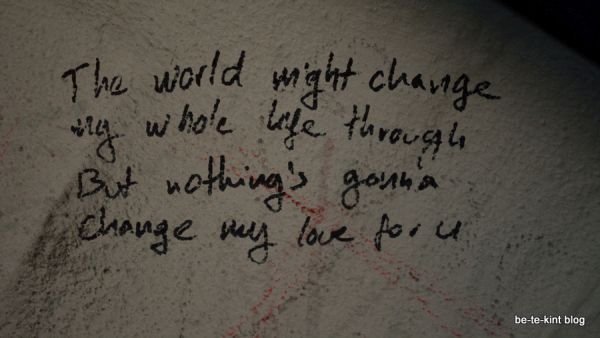 The world might change
my whole life through
But nothing's gonna
change my love for u
be-te-kint blog